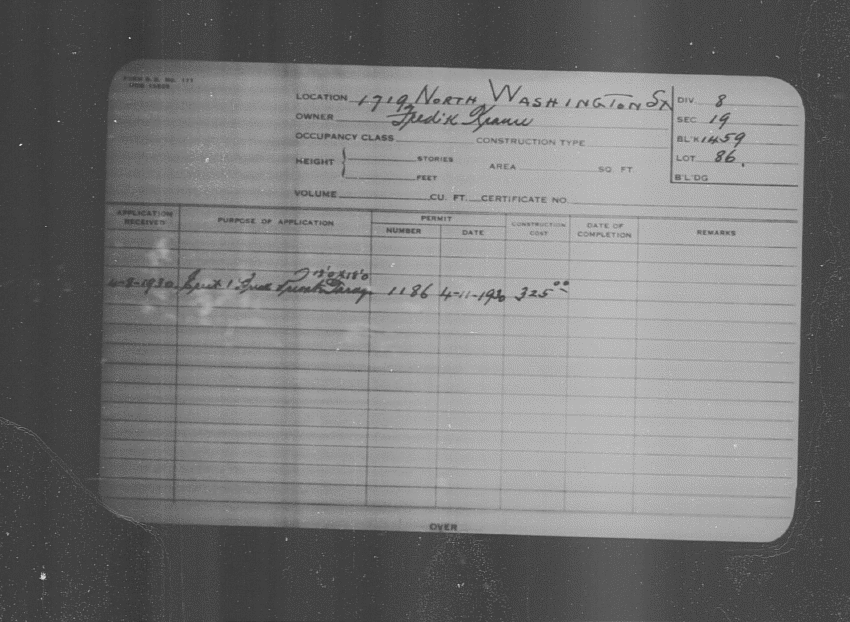 FORM B.B. No. 111
LOCATION 1719 NORTH WASHINGTON ST
DIV. 8
OWNER Fred'k
SEC. 19
OCCUPANCY CLASS CONSTRUCTION TYPE
BL'K 1459
HEIGHT STORIES AREA SQ. FT.
LOT 86.
FEET
B'L'DG
VOLUME CU. FT. CERTIFICATE NO.
APPLICATION RECEIVED PURPOSE OF APPLICATION PERMIT NUMBER DATE CONSTRUCTION COST DATE OF COMPLETION REMARKS
18'0 X 18'0
4-8-1930 Erect 1 Garage 1186 4-11-1930 325 00
OVER